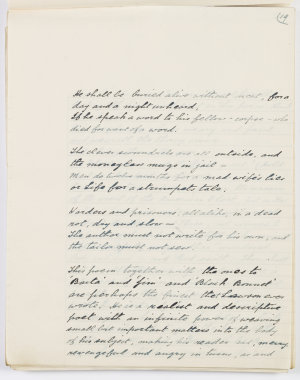 19
He shall be buried alive without meat, for a
day and a night unheard.
If he speak a word to his fellow-corpse - who
died for want of a word.
The clever scoundrels are all outside, and
the moneyless mugs in gaol -
Men do twelve months for a mad wife's lies
or Life for a strumpet's tale.
Warders and prisoners, all alike, in a dead
rot, dry and slow -
The author must not write for his own, and
the tailor must not sew.
This poem together with the ones to
"Bertha" and "Jim" and "Black Bonnet"
are perhaps the finest that Lawson ever
wrote. He is a realist and descriptive
poet with an infinite power of weaving
small but important matters into the body
of his subject, making his reader sad, merry,
revengeful and angry in turns, as and